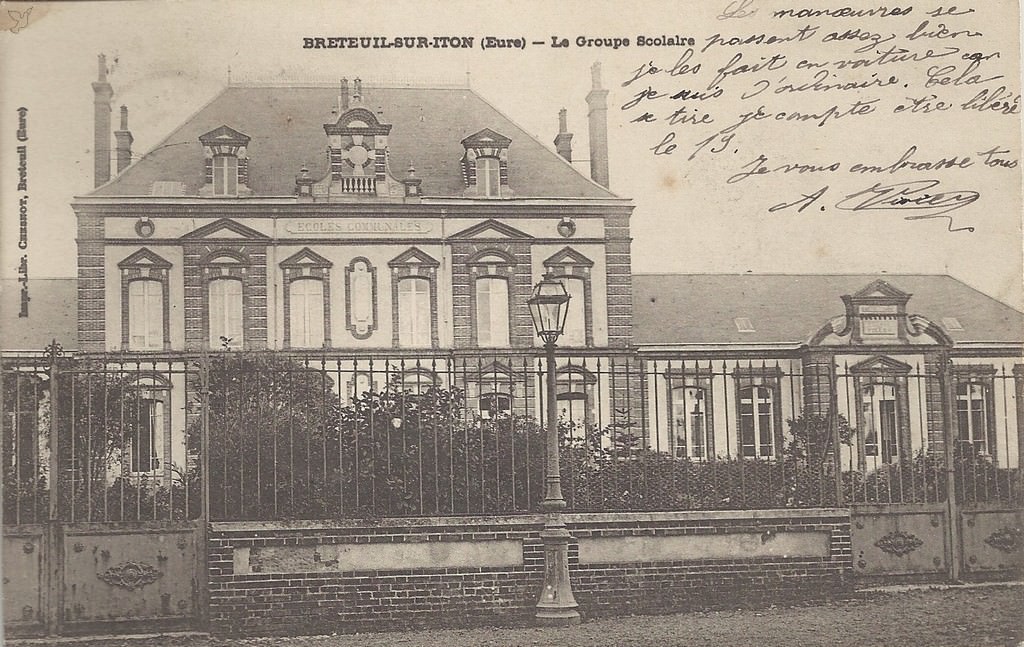 BRETEUIL-SUR-ITON (Eure) — Le Groupe Scolaire
Les manœuvres se
passent assez bien
je les fait en voiture car
je suis d'ordinaire. Cela
se tire je compte être libéré
le 19.
Je vous embrasse tous
A.
ECOLES COMMUNALES
Impr.-Libr. CHERROT, Breteuil (Eure)